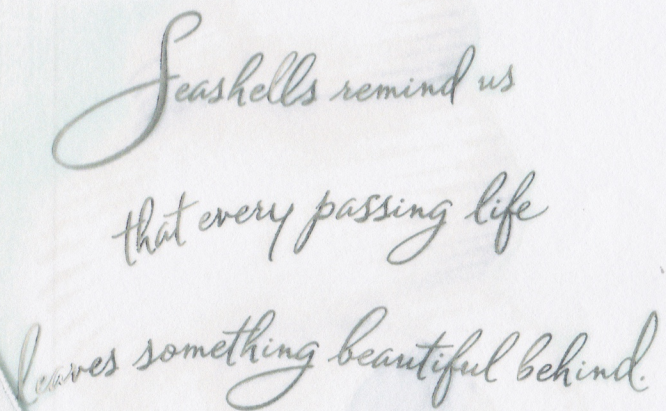 Seashells remind us
that every passing life
leaves something beautiful behind.